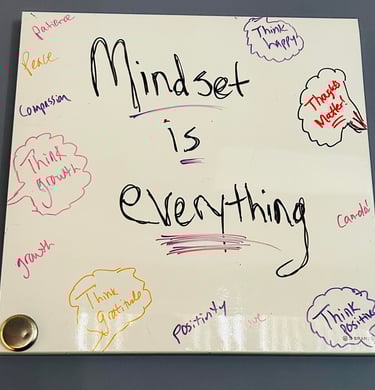 Patience
Think
happy!
Peace
Mindset
Compassion
Thoughts
Matter!
is
Think
growth
everything
Candid!
growth
Think
gratitude
Positivity
Think
positive